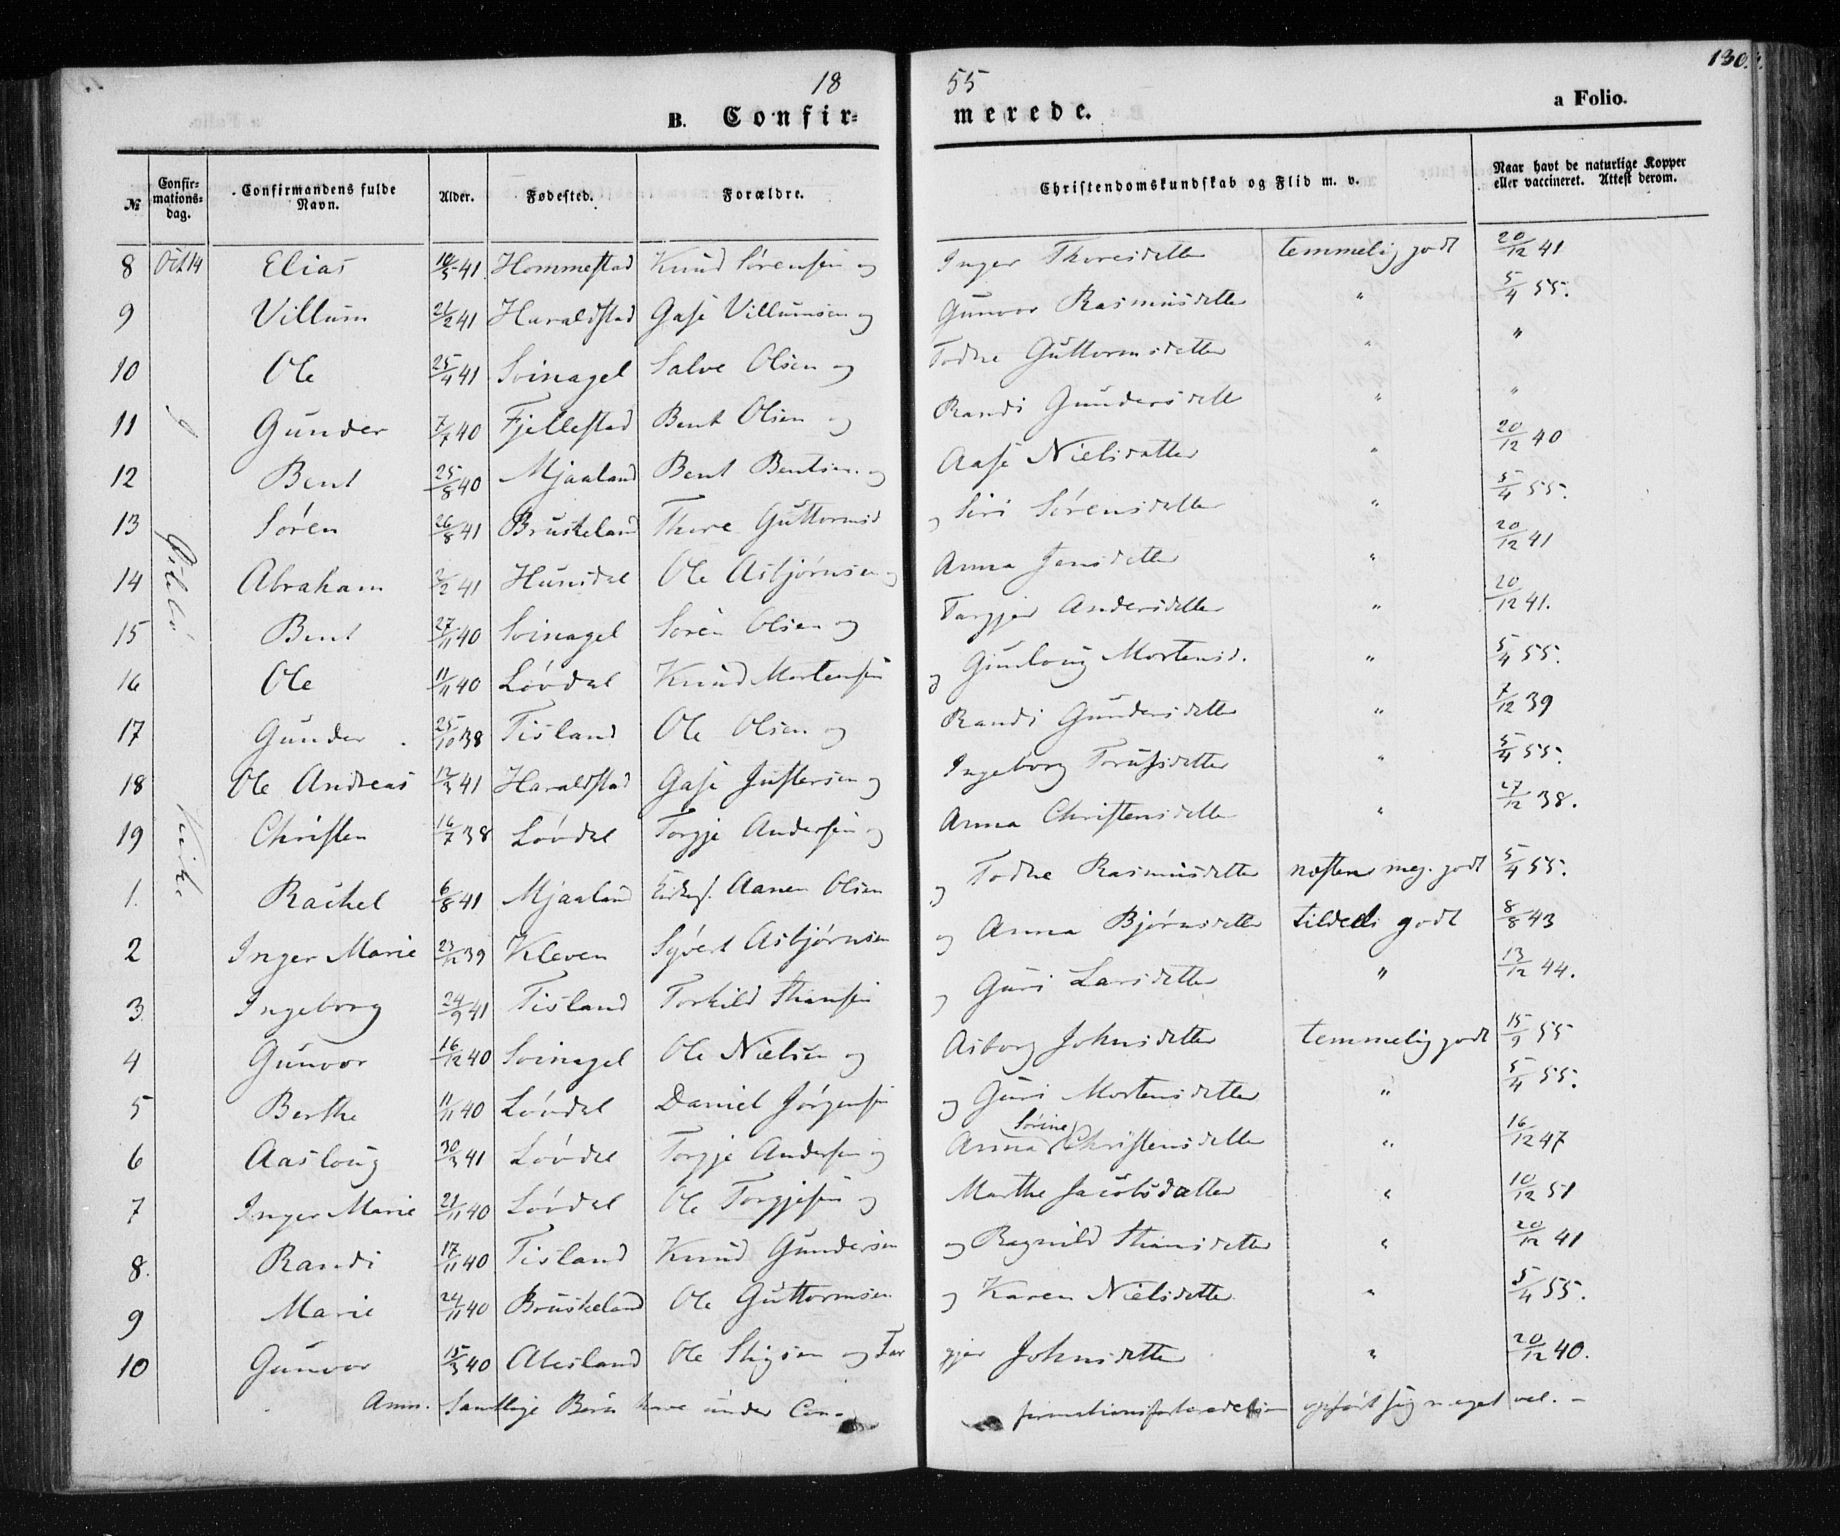 18 55 130.
B. Confir= merede. a Folio.
№ Confir-mations-dag. Confirmandens fulde Navn. Alder. Fødested. Forældre. Christendomskundskab og Flid m. v. Naar havt de naturlige Kopper eller vaccineret. Attest derom.
8 Oct 14 Elias 41 Hommestad Knud Sørensen og Inger Thoresdatter temmelig godt 20/12 41
9 Villum 21/2 41 Haraldstad Gase Villumsen og Gunvor Rasmusdatter " 5/4 55.
10 Ole 25/4 41 Svinagel Salve Olsen og Todne Guttormsdatter " "
11 Gunder 7/7 40 Fjellestad Bent Olsen og Randi Gundersdatt " "
12 Bent 25/8 40 Mjaaland Bent Bentsen og Aase Nielsdatter " 20/12 40
13 Søren 26/8 41 Bruskeland Thore Guttormsd og Siri Sørensdatter " 5/4 55.
14 Abraham 2/2 41 Hunsdal Ole Asbjørnsen og Anna Jensdatter " 20/12 41
15 Bent 27/11 40 Svinagel Søren Olsen og Targjer Andersdatter " 20/12 41.
16 Ole 11/11 40 Løvdal Knud Mortensen og Gunloug Mortensd. " 5/4 55.
17 Gunder 25/10 38 Tisland Ole Olsen og Randi Gundersdatter " 7/12 39
18 Ole Andreas 12/3 41 Haraldstad Gase Justersen og Ingeborg Torusdatter " 5/4 55.
19 Christen 16/7 38 Løvdal Torgje Andersen og Anna Christensdatter " 27/12 38.
Kirke
1. Rachel 6/8 41 Mjaaland Kirkes. Aanen Olsen og Todne Rasmusdatter næsten meg. godt 5/4 55.
2 Inger Marie 23/12 39 Kleven Syvert Asbjørnsen og Anna Bjørnsdatter tildeels godt 8/8 43
3. Ingeborg 24/9 41 Tisland Torkild Stiansen og Guri Larsdatter " 13/12 44.
4 Gunvor 16/12 40 Svinagel Ole Nielsen og Asborg Johnsdatter temmelig godt 15/9 55
5 Berthe 11/11 40 Løvdal Daniel Jørgensen og Guri Mortensdatter " 5/4 55.
6 Aasloug 30/3 41 Løvdal Torgje Andersen og Anna Sørine Christensdatter " 16/12 47
7 Inger Marie 21/11 40 Løvdal Ole Torgjesen og Marthe Jacobsdatter " 10/12 51
8. Randi 17/11 40 Tisland Knud Gundersen og Ragnild Stiansdatter " 20/12 41
9 Marie 24/11 40 Bruskeland Ole Guttormsen og Karen Nielsdatter " 5/4 55.
10 Gunvor 15/3 40 Alesland Ole Stigsen og Tar gjer Johnsdatter " 20/12 40.
Anm. Samtlige Børn have under Con- firmationsforberedelsen opført sig meget vel. -